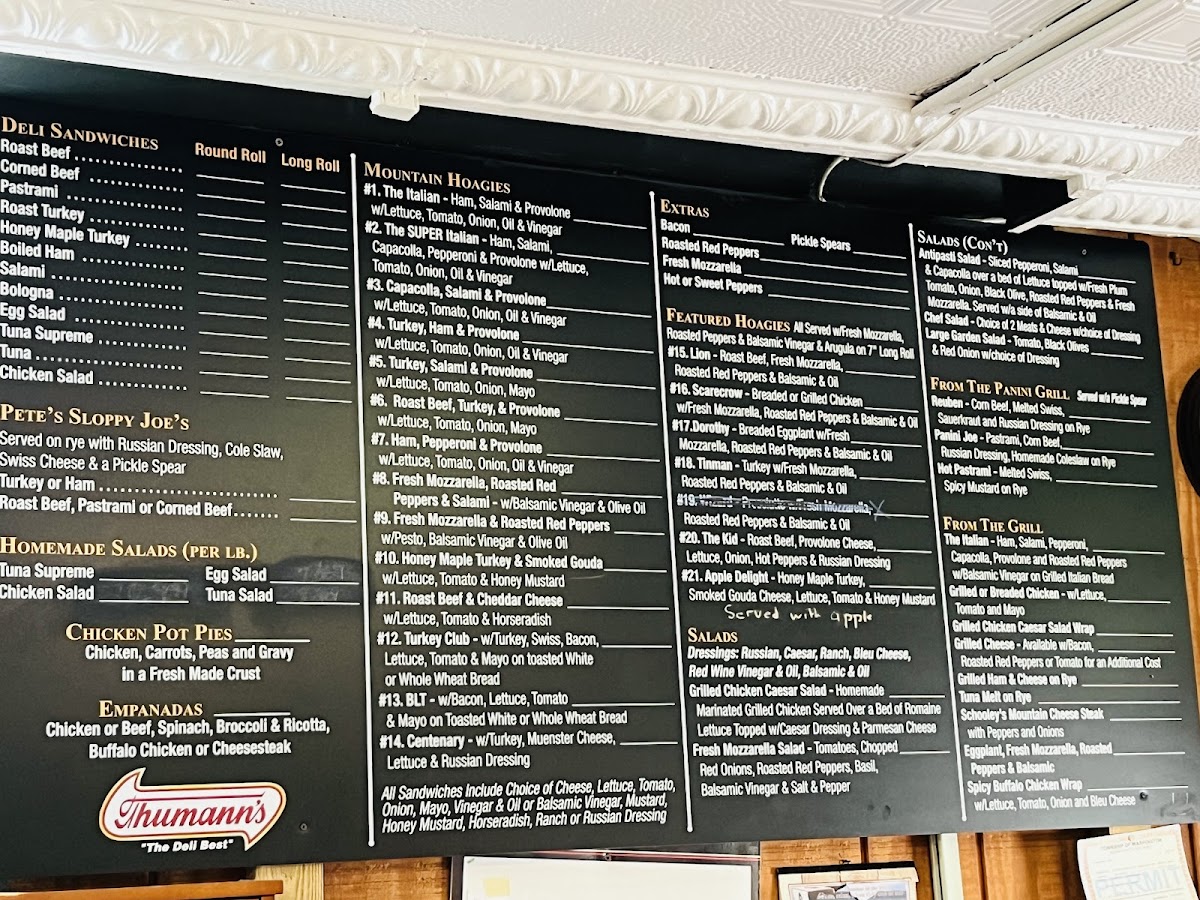 DELI SANDWICHES Round Roll Long Roll
Roast Beef
Corned Beef
Pastrami
Roast Turkey
Honey Maple Turkey
Boiled Ham
Salami
Bologna
Egg Salad
Tuna Supreme
Tuna
Chicken Salad
PETE'S SLOPPY JOE'S
Served on rye with Russian Dressing, Cole Slaw,
Swiss Cheese & a Pickle Spear
Turkey or Ham
Roast Beef, Pastrami or Corned Beef
HOMEMADE SALADS (PER LB.)
Tuna Supreme Egg Salad
Chicken Salad Tuna Salad
CHICKEN POT PIES
Chicken, Carrots, Peas and Gravy
in a Fresh Made Crust
EMPANADAS
Chicken or Beef, Spinach, Broccoli & Ricotta,
Buffalo Chicken or Cheesesteak
Thumann's
"The Deli Best"
MOUNTAIN HOAGIES
#1. The Italian - Ham, Salami & Provolone
w/Lettuce, Tomato, Onion, Oil & Vinegar
#2. The SUPER Italian - Ham, Salami,
Capacolla, Pepperoni & Provolone w/Lettuce,
Tomato, Onion, Oil & Vinegar
#3. Capacolla, Salami & Provolone
w/Lettuce, Tomato, Onion, Oil & Vinegar
#4. Turkey, Ham & Provolone
w/Lettuce, Tomato, Onion, Oil & Vinegar
#5. Turkey, Salami & Provolone
w/Lettuce, Tomato, Onion, Mayo
#6. Roast Beef, Turkey, & Provolone
w/Lettuce, Tomato, Onion, Mayo
#7. Ham, Pepperoni & Provolone
w/Lettuce, Tomato, Onion, Oil & Vinegar
#8. Fresh Mozzarella, Roasted Red
Peppers & Salami - w/Balsamic Vinegar & Olive Oil
#9. Fresh Mozzarella & Roasted Red Peppers
w/Pesto, Balsamic Vinegar & Olive Oil
#10. Honey Maple Turkey & Smoked Gouda
w/Lettuce, Tomato & Honey Mustard
#11. Roast Beef & Cheddar Cheese
w/Lettuce, Tomato & Horseradish
#12. Turkey Club - w/Turkey, Swiss, Bacon,
Lettuce, Tomato & Mayo on toasted White
or Whole Wheat Bread
#13. BLT - w/Bacon, Lettuce, Tomato
& Mayo on Toasted White or Whole Wheat Bread
#14. Centenary - w/Turkey, Muenster Cheese,
Lettuce & Russian Dressing
All Sandwiches Include Choice of Cheese, Lettuce, Tomato,
Onion, Mayo, Vinegar & Oil or Balsamic Vinegar, Mustard,
Honey Mustard, Horseradish, Ranch or Russian Dressing
EXTRAS
Bacon Pickle Spears
Roasted Red Peppers
Fresh Mozzarella
Hot or Sweet Peppers
FEATURED HOAGIES All Served w/Fresh Mozzarella,
Roasted Peppers & Balsamic Vinegar & Arugula on 7" Long Roll
#15. Lion - Roast Beef, Fresh Mozzarella,
Roasted Red Peppers & Balsamic & Oil
#16. Scarecrow - Breaded or Grilled Chicken
w/Fresh Mozzarella, Roasted Red Peppers & Balsamic & Oil
#17.Dorothy - Breaded Eggplant w/Fresh
Mozzarella, Roasted Red Peppers & Balsamic & Oil
#18. Tinman - Turkey w/Fresh Mozzarella,
Roasted Red Peppers & Balsamic & Oil
#19. Wizard - Prosciutto w/Fresh Mozzarella,
Roasted Red Peppers & Balsamic & Oil
#20. The Kid - Roast Beef, Provolone Cheese,
Lettuce, Onion, Hot Peppers & Russian Dressing
#21. Apple Delight - Honey Maple Turkey,
Smoked Gouda Cheese, Lettuce, Tomato & Honey Mustard
Served with apple
SALADS
Dressings: Russian, Caesar, Ranch, Bleu Cheese,
Red Wine Vinegar & Oil, Balsamic & Oil
Grilled Chicken Caesar Salad - Homemade
Marinated Grilled Chicken Served Over a Bed of Romaine
Lettuce Topped w/Caesar Dressing & Parmesan Cheese
Fresh Mozzarella Salad - Tomatoes, Chopped
Red Onions, Roasted Red Peppers, Basil,
Balsamic Vinegar & Salt & Pepper
SALADS (CON'T)
Antipasti Salad - Sliced Pepperoni, Salami
& Capacolla over a bed of Lettuce topped w/Fresh Plum
Tomato, Onion, Black Olive, Roasted Red Peppers & Fresh
Mozzarella. Served w/a side of Balsamic & Oil
Chef Salad - Choice of 2 Meats & Cheese w/choice of Dressing
Large Garden Salad - Tomato, Black Olives
& Red Onion w/choice of Dressing
FROM THE PANINI GRILL Served w/a Pickle Spear
Reuben - Corn Beef, Melted Swiss,
Sauerkraut and Russian Dressing on Rye
Panini Joe - Pastrami, Corn Beef,
Russian Dressing, Homemade Coleslaw on Rye
Hot Pastrami - Melted Swiss,
Spicy Mustard on Rye
FROM THE GRILL
The Italian - Ham, Salami, Pepperoni,
Capacolla, Provolone and Roasted Red Peppers
w/Balsamic Vinegar on Grilled Italian Bread
Grilled or Breaded Chicken - w/Lettuce,
Tomato and Mayo
Grilled Chicken Caesar Salad Wrap
Grilled Cheese - Available w/Bacon,
Roasted Red Peppers or Tomato for an Additional Cost
Grilled Ham & Cheese on Rye
Tuna Melt on Rye
Schooley's Mountain Cheese Steak
with Peppers and Onions
Eggplant, Fresh Mozzarella, Roasted
Peppers & Balsamic
Spicy Buffalo Chicken Wrap
w/Lettuce, Tomato, Onion and Bleu Cheese
PERMIT